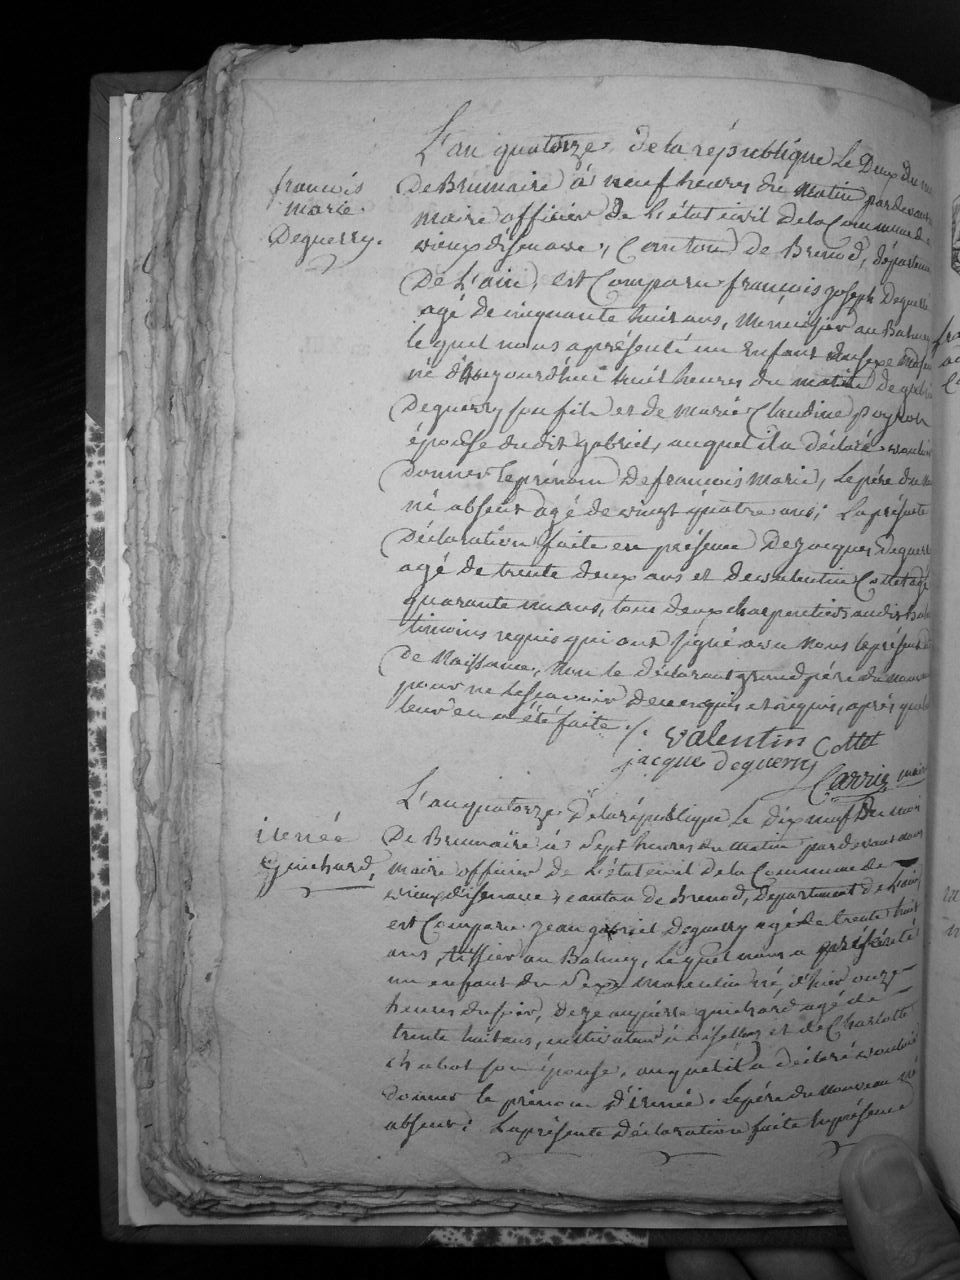 françois
marie
Deguerry.
L'an quatorze de la république Le Deux du
De Brumaire à neuf heures du matin pardevant
maire officier De L'état civil De la Commune de
vieux d'isenave, Canton De Brenod, départem
De L'ain, est Comparu françois joseph Deguerri
agé de cinquante huit ans, Menuisier au Balmey
le quel nous aprésenté un Enfant du sexe
né d'Aujourd'hui huit heures du matin De gabri
Deguerry son fils et de marie Claudine
épouse du dit gabriel, auquel il a déclaré vouloir
Donner le prénom De françois Marie, Le père du
né absent agé de vingt quatre ans; La présente
Déclaration faite en présence De Jacques Deguerr
agé De trente deux ans et De valentin Cottet agé
quarante un ans, tous deux charpentiers audit Bal
témoins requis qui ont signé avec Nous le présent
De Naissance, Non le déclarant grand père du nouveau
pour ne le sçavoir De ce enquis et requis, après que
leur en a été faite ./.
valentin Cottet
jacque deguerry
Carrier maire
irenée
Guichard,
L'an quatorze De la république Le dix neuf Du moi
De Brumaire à Sept heures du matin par devant nous
maire officier De L'état civil De la Commune de
vieux d'isenave, canton de Brenod, Departement de L'ain
est Comparu jean gabriel Deguerry agé de trente huit
ans, tissier au Balmey, Le quel nous a présenté
un enfant du Sexe Masculin né, d'hier onze
heures du soir, De jean pierre guichard agé de
trente huit ans, cultivateur à et de Charlotte
chabot son épouse, auquel il a déclaré vouloir
donner le prénom d'irenée. Le père du nouveau né
absent; La présente Déclaration faite En présence